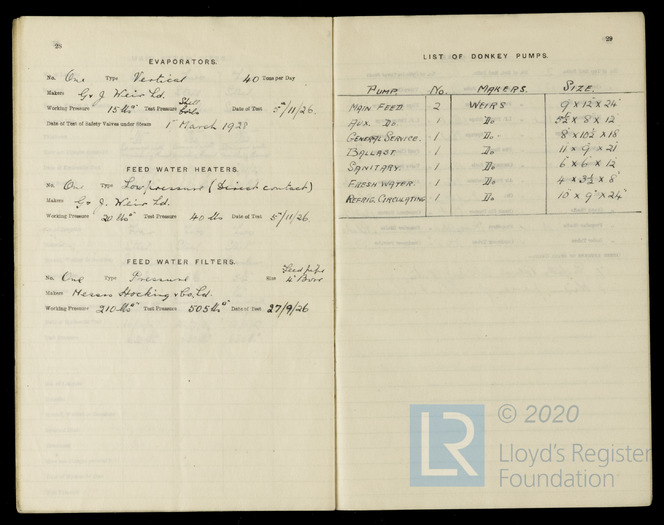 28
EVAPORATORS.
No. One Type Vertical 40 Tons per Day
Makers G & J Weir Ld.
Working Pressure 15 lbs□" Test Pressure Shell Coils Date of Test 5"/11/26.
Date of Test of Safety Valves under Steam 1st March 1928
FEED WATER HEATERS.
No. One Type Low pressure (Direct contact)
Makers G & J. Weir Ld.
Working Pressure 20 lbs□" Test Pressure 40 lbs Date of Test 5"/11/26
FEED WATER FILTERS.
No. One Type Pressure Size Feed pipe 4" Bore
Makers Messrs Hocking & Co, Ld.
Working Pressure 210 lbs□" Test Pressure 505 lbs□" Date of Test 27/9/26
29
LIST OF DONKEY PUMPS.
PUMP. No. MAKERS. SIZE.
MAIN FEED. 2 WEIRS 9" × 12" × 24"
AUX. Do. 1 Do 8 × 12
GENERAL SERVICE. 1 Do 8" × 10½ × 18
BALLAST. 1 Do 11 × 9 × 21"
SANITARY. 1 Do 6 × 6 × 12"
FRESH WATER. 1 Do 4 × 3½ × 8"
REFRIG. CIRCULATING 1 Do 10" × 9" × 24"
LR © 2020
Lloyd's Register
Foundation